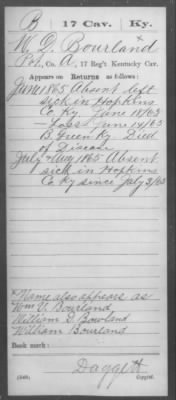 B 17 Cav. Ky.
W. D. Bourland
Pvt, Co. A, 17 Reg't Kentucky Cav.
Appears on Returns as follows:
June 1865 Absent left
sick in Hopkins
Co Ky June 18/65
- Loss June 14/65
B. Green Ky. Died
of Disease
July & Aug 1865 Absent
sick in Hopkins
Co Ky since July 3/65
Name also appears as
Wm D. Bourland
William D. Bowland
William Bourland
Book mark:
Daggett
(546) Copyist.